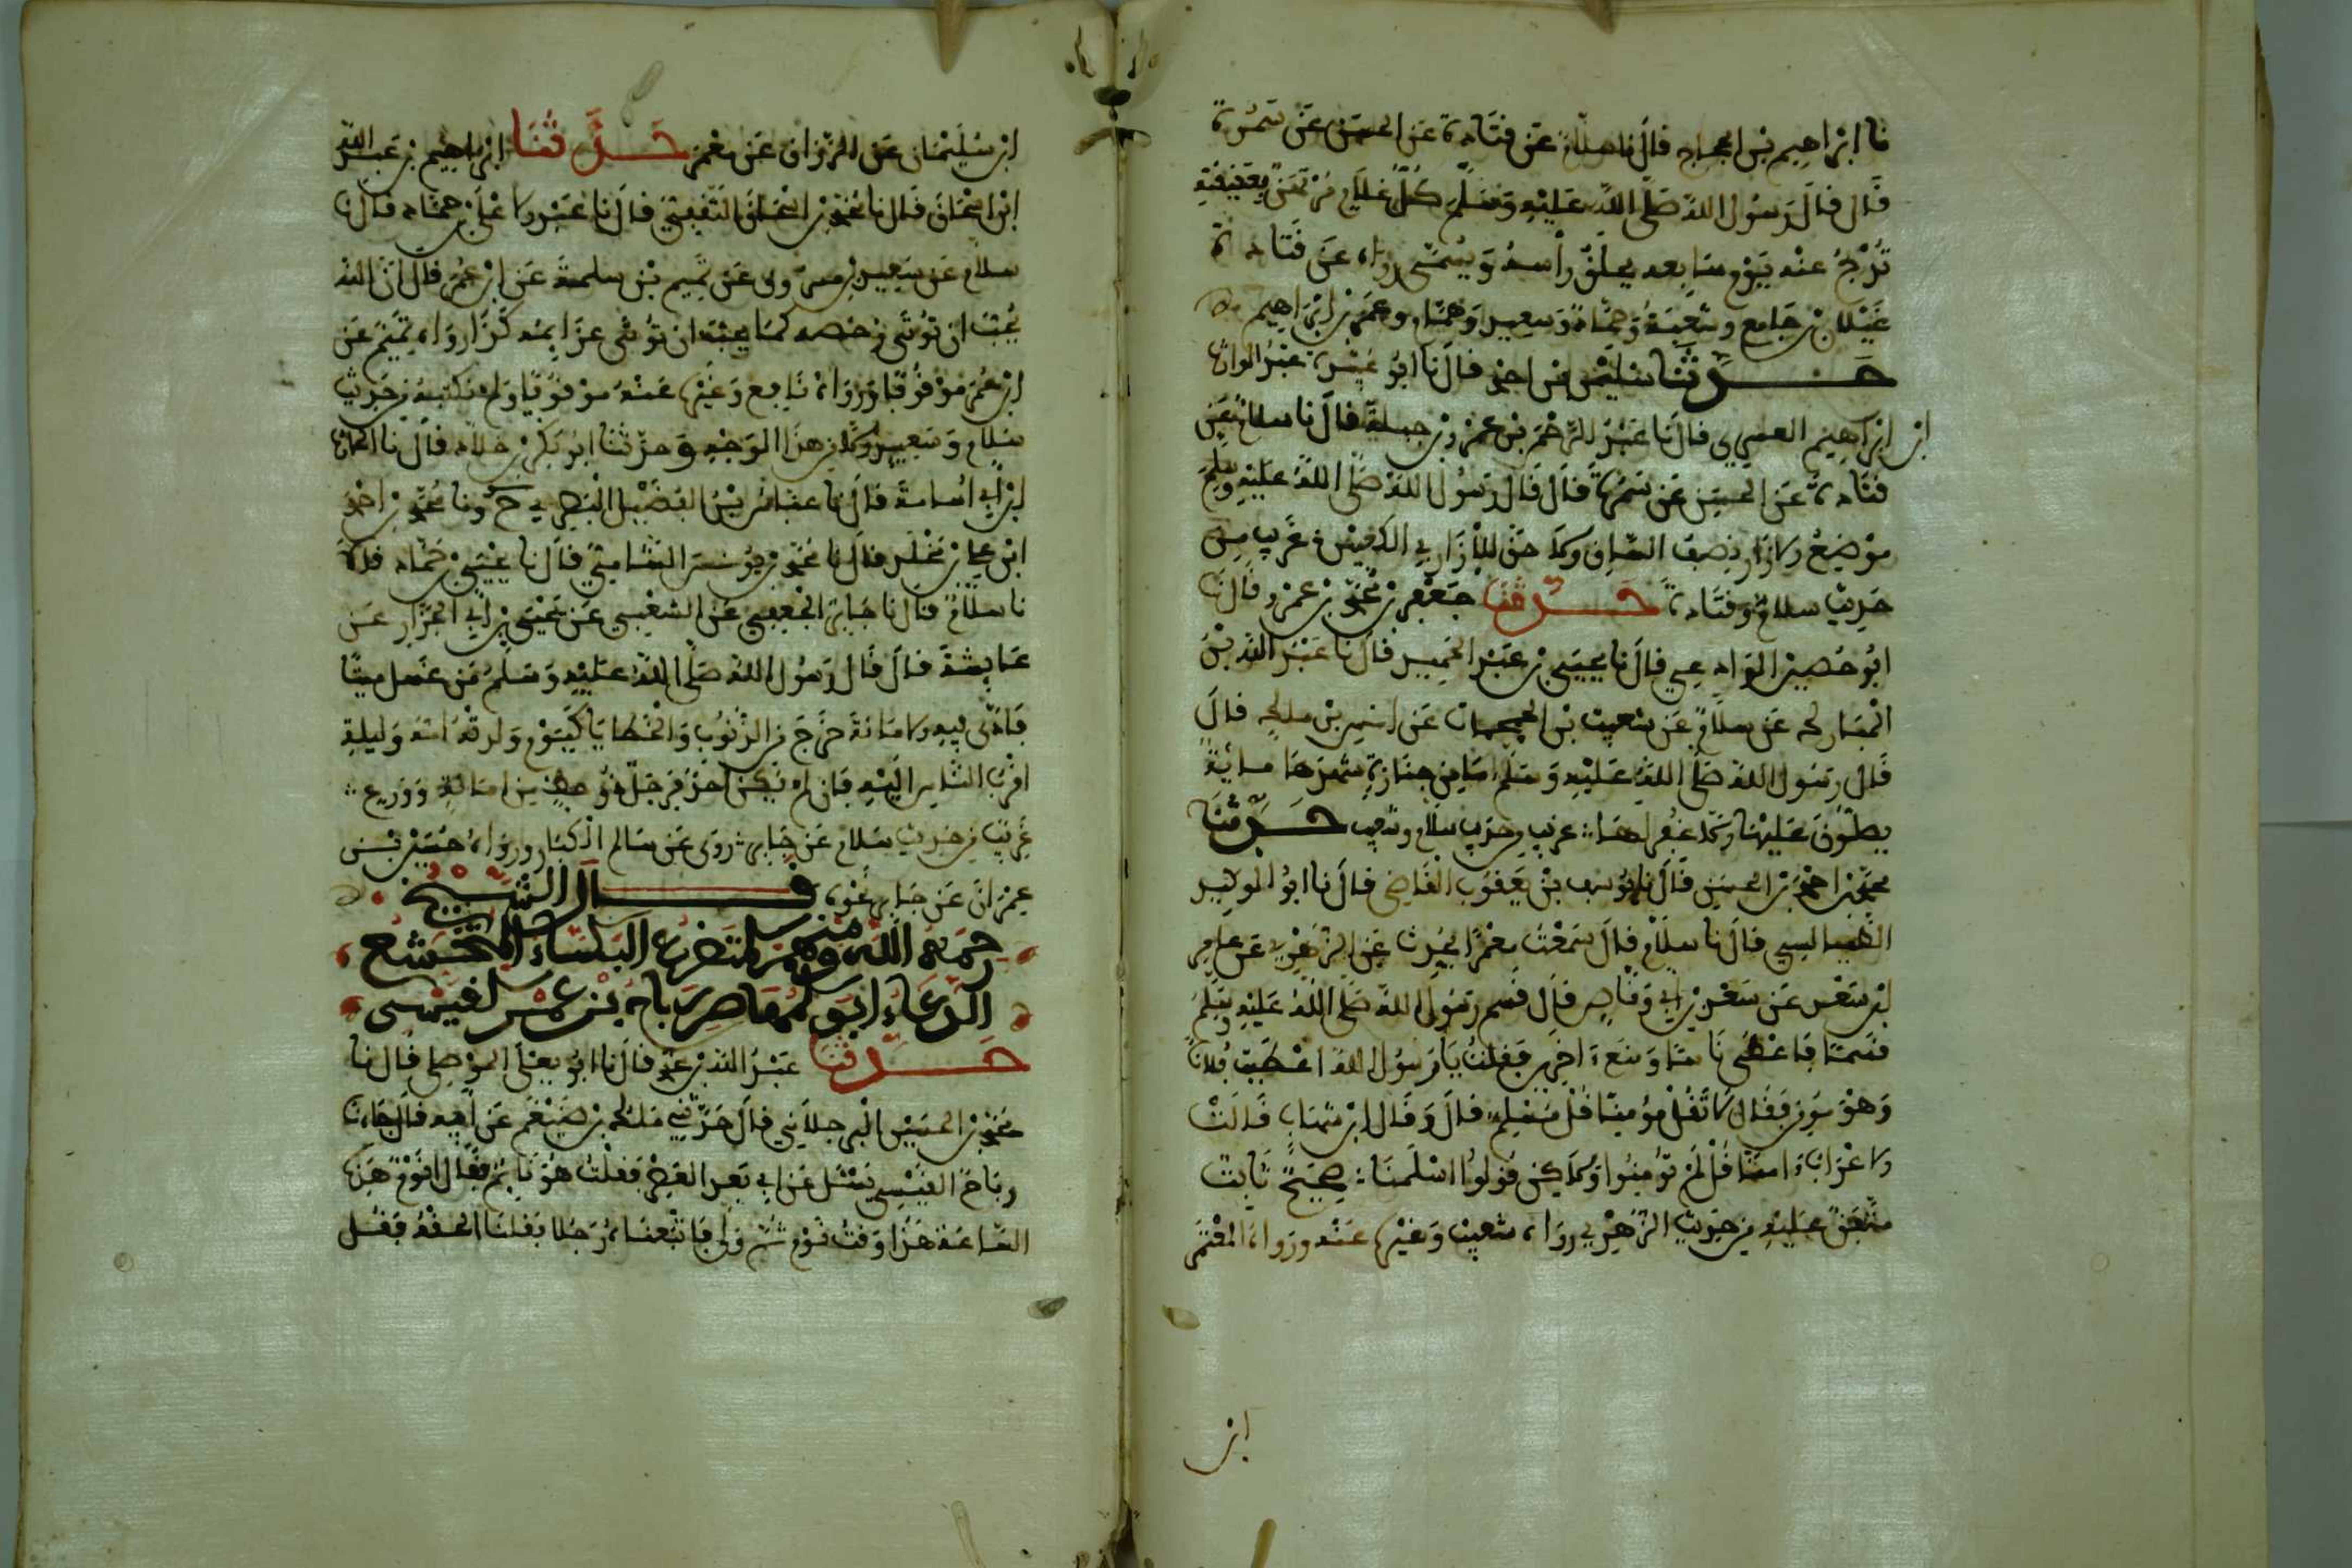 نا ابراهيم بن الحجاج قال نا سلام عن قتادة عن الحسن عن سمرة
قال قال رسول الله صلى الله عليه وسلم كل غلام مرتهن بعقيقته
تذبح عنه يوم سابعه يحلق رأسه ويسمى رواه عن قتادة
غيلان بن جامع وشعبة وحماد وسعيد وهمام وعمر بن ابراهيم
حدثنا سليمن بن احمد قال نا ابو عبيدة عبد الوارث
ابن ابراهيم العسكري قال نا عبد الرحمن بن عمرو بن جبلة قال نا سلام عن
قتادة عن الحسن عن سمرة قال قال رسول الله صلى الله عليه وسلم
موضع الازار نصف الساق ولا حق للازار في الكعبين غريب من
حديث سلام وقتادة حدثنا جعفر بن محمد بن عمرو قال نا
ابو حصين الوادعي قال نا يحيى بن عبد الحميد قال نا عبد الله بن
المبارك عن سلام عن شعيب بن الحبحاب عن انس بن ملك قال
قال رسول الله صلى الله عليه وسلم ما من جنازة شهدها مائة
يصلون عليها الا غفر لها غريب من حديث سلام وشعيب حدثنا
محمد بن احمد بن الحسين قال نا يوسف بن يعقوب القاضي قال نا ابو الوليد
الطيالسي قال نا سلام قال سمعت معمرا يحدث عن الزهري عن عامر
ابن سعد عن سعد بن ابي وقاص قال قسم رسول الله صلى الله عليه وسلم
قسما فاعطى ناسا ومنع اخرين فقلت يا رسول الله اعطيت فلانا
وهو مومن فقال لا تقل مؤمنا قل مسلم قال وقال ابن شهاب قالت
الاعراب امنا قل لم تؤمنوا ولكن قولوا اسلمنا صحيح ثابت
متفق عليه من حديث الزهري رواه شعيب وغيره عنه ورواه المعتمر
ابن
ابن سليمان عن الرزاق عن معمر حدثنا ابراهيم بن عبد الله
ابن اسحاق قال نا محمد بن اسحاق الثقفي قال نا عبد الاعلى بن حماد قال نا
سلام عن سعيد بن مسروق عن تميم بن سلمة عن ابن عمر قال ان الله
يحب ان تؤتى رخصه كما يحب ان تؤتى عزايمه كذا رواه تميم عن
ابن عمر موقوفا ورواه نافع وغيره عنه موقوفا ولم نكتبه من حديث
سلام وسعيد الا من هذا الوجه وحدثنا ابو بكر بن خلاد قال نا الحارث
ابن ابي اسامة قال نا عباس بن الفضل البصري ح ونا محمد بن احمد
ابن علي بن مخلد قال نا محمد بن يونس الشامي قال نا عيسى بن حماد قالا
نا سلام قال نا جابر الجعفي عن الشعبي عن يحيى بن ابي الجزار عن
عايشة قال قال رسول الله صلى الله عليه وسلم من غسل ميتا
فادى فيه الامانة خرج من الذنوب والخطايا كيوم ولدته امه وليله
اقرب الناس اليه فان لم يكن احد فرجل امانة وورع
غريب من حديث سلام عن جابر روى عن سالم الكبار ورواه حسين بن
عمران عن جابر نحوه قال الشيخ
رحمه الله ومنهم المتضرع البكاء المتخشع
الدعاء ابو المهاصر رباح بن عمرو القيسي
حدثنا عبد الله بن محمد قال نا ابو يعلى الموصلي قال نا
محمد بن الحسين البرجلاني قال حدثني ملك بن ضيغم عن ابيه قال جاءنا
رباح القيسي يسئل عن ابي بعد العصر فقلت هو نايم فقال انوم هذه
الساعة هذا وقت نوم ثم ولى فاتبعناه رجلا فقلنا الحقه فقل